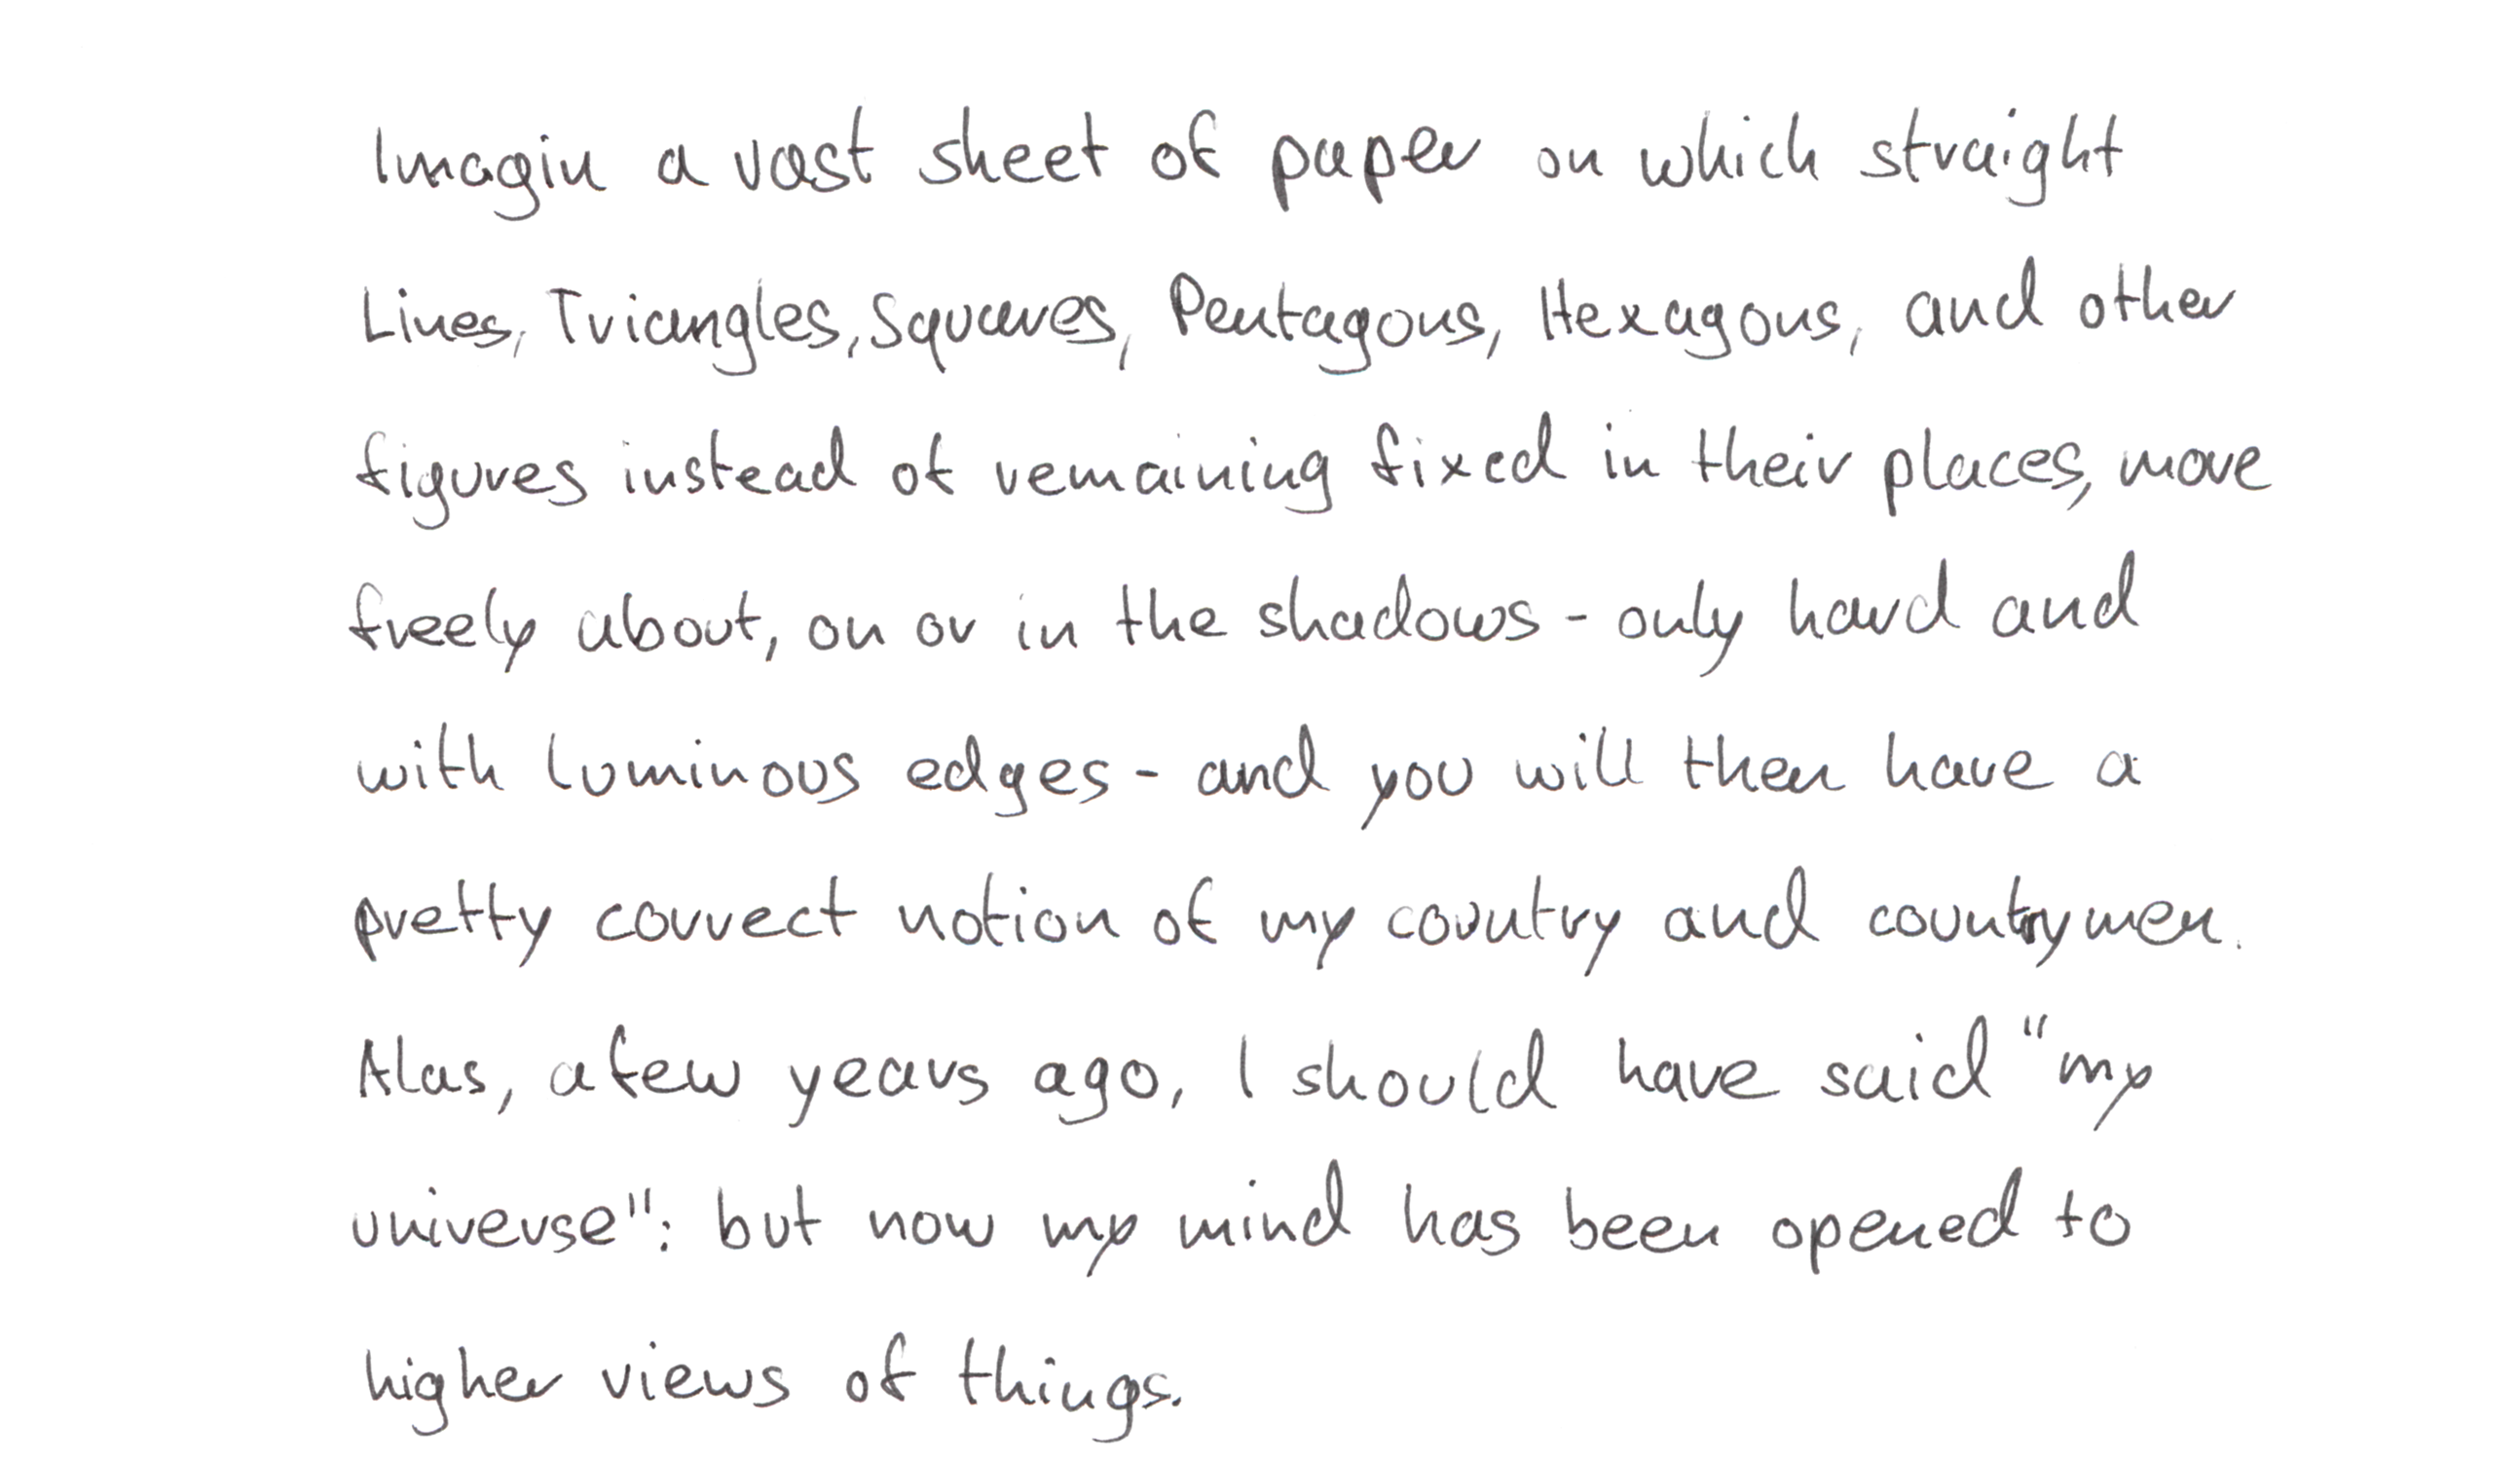 Imagin a vast sheet of paper on which straight
Lines, Triangles, Squares, Pentagons, Hexagons, and other
figures instead of remaining fixed in their places, move
freely about, on or in the shadows - only hard and
with luminous edges - and you will then have a
pretty correct notion of my country and countrymen.
Alas, a few years ago, I should have said "my
universe": but now my mind has been opened to
higher views of things.